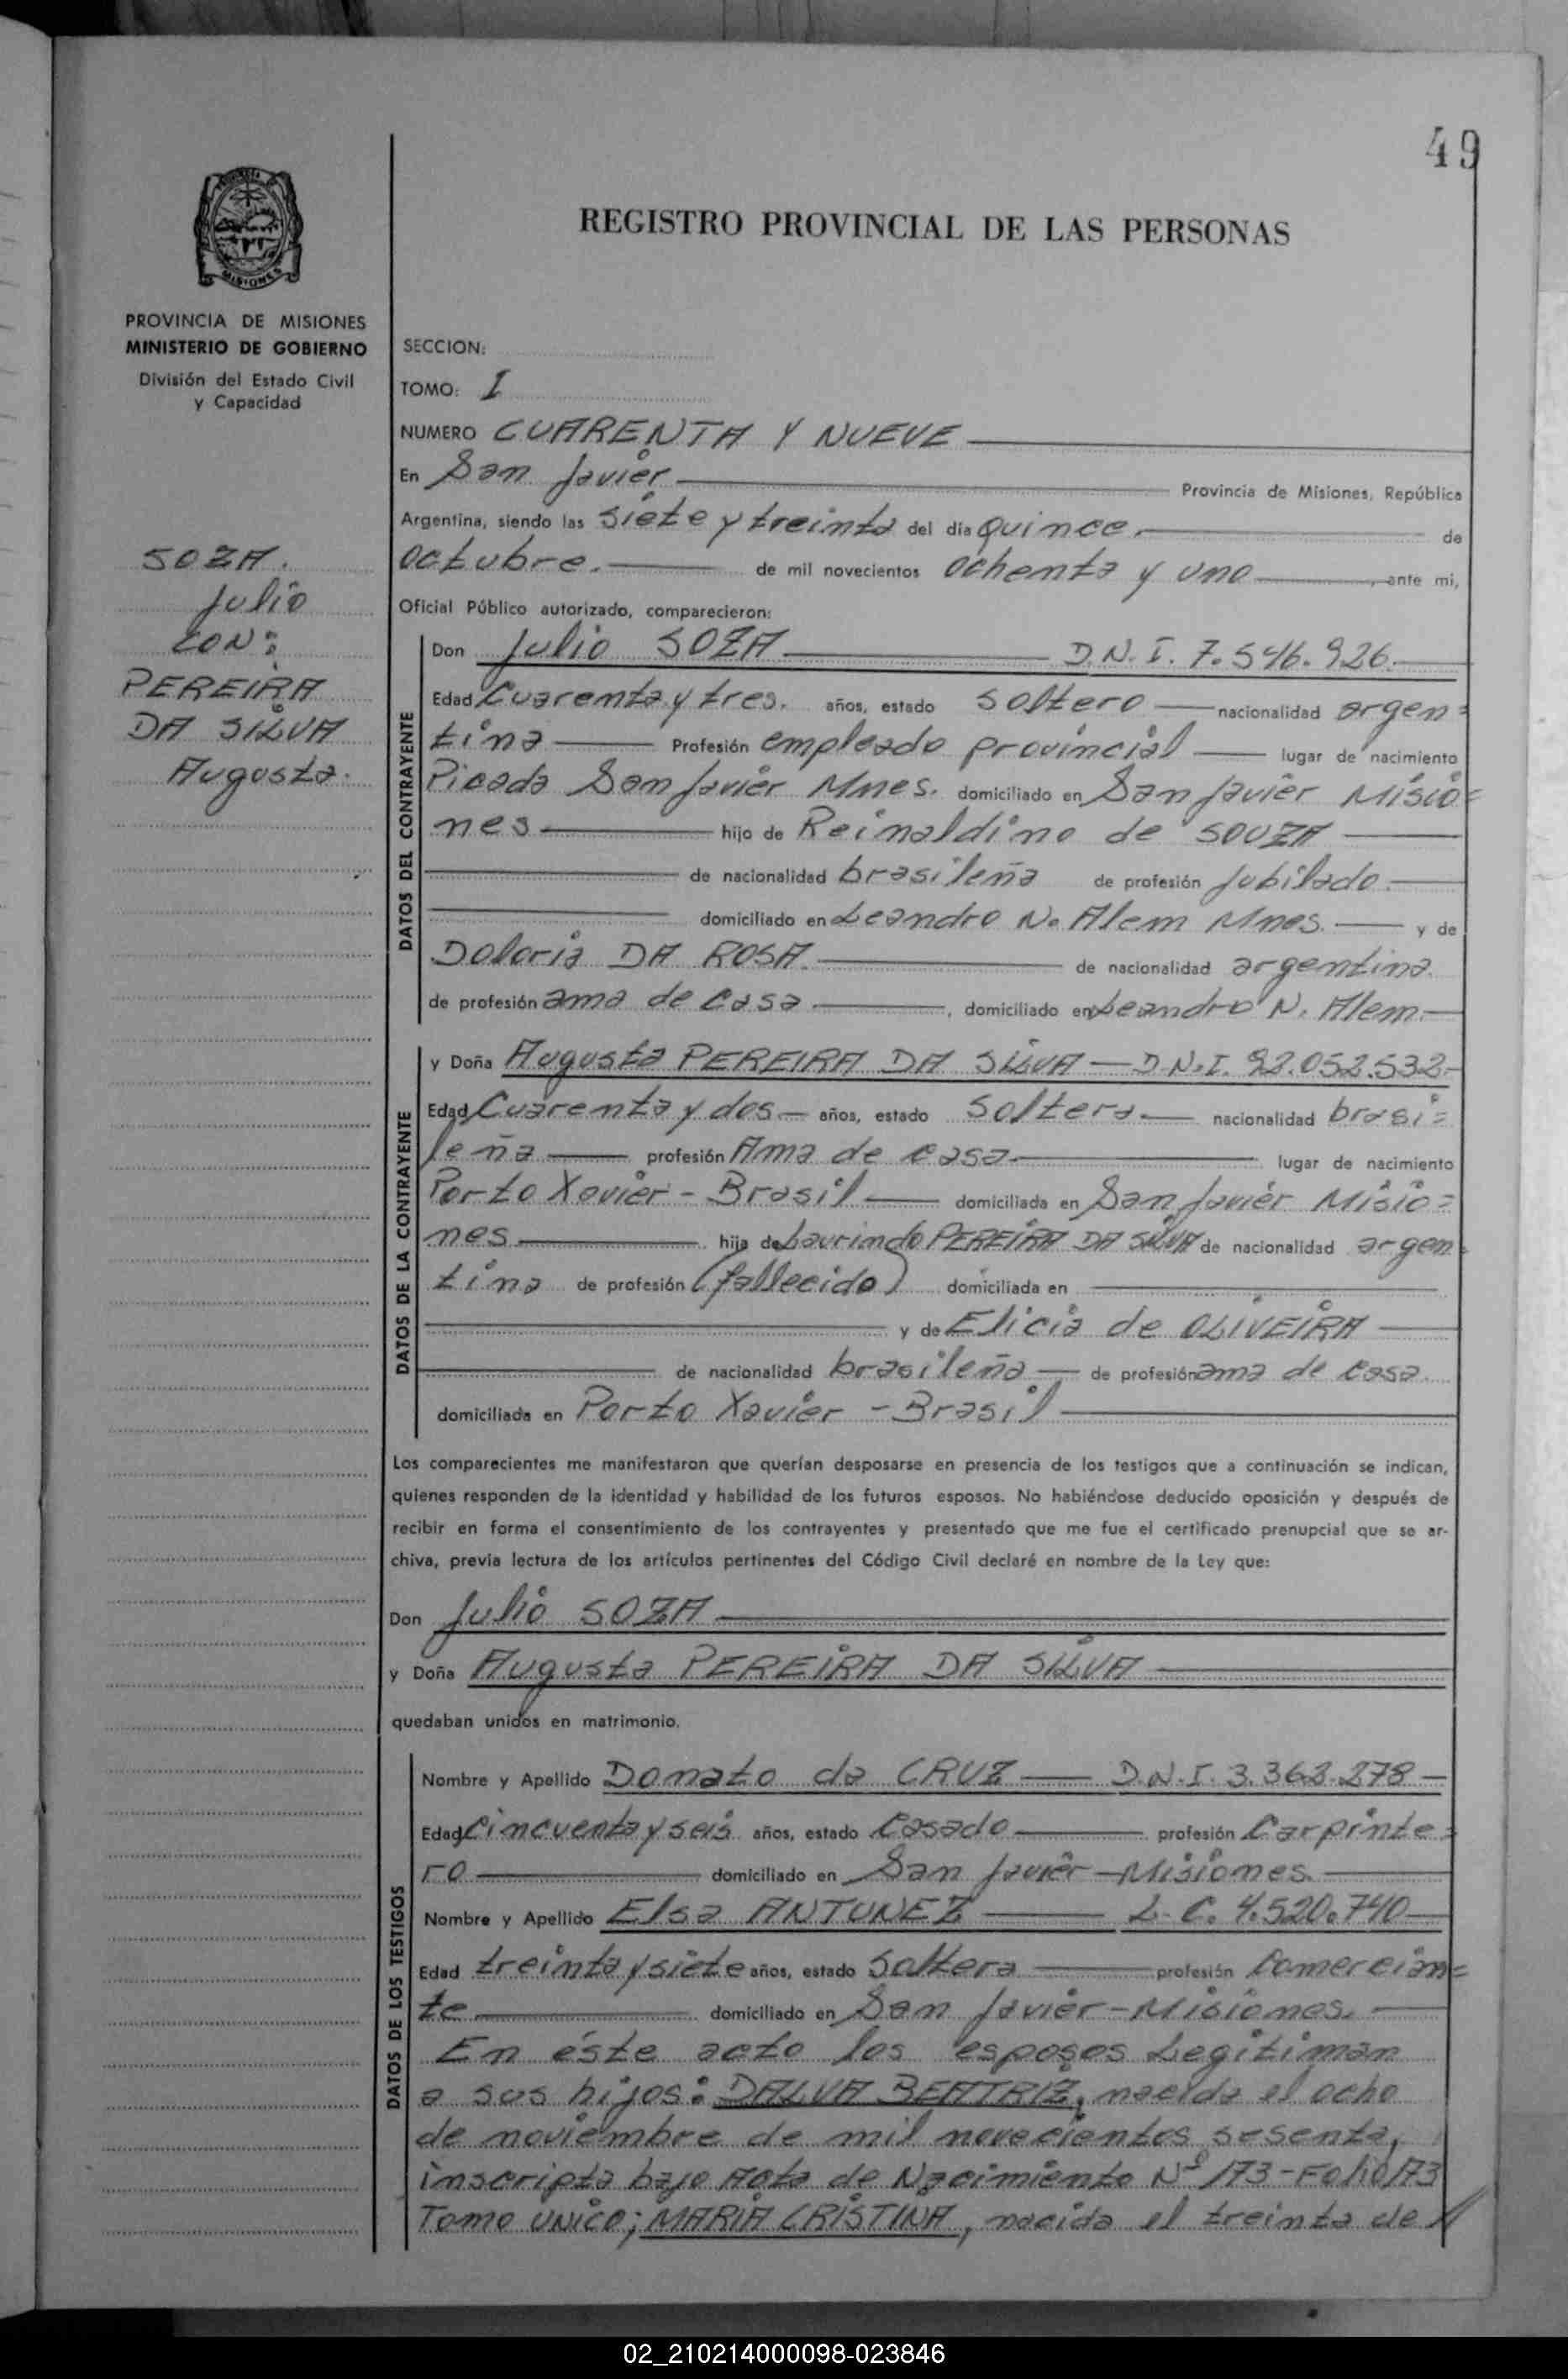 49
MISIONES
REGISTRO PROVINCIAL DE LAS PERSONAS
PROVINCIA DE MISIONES
MINISTERIO DE GOBIERNO
División del Estado Civil
y Capacidad
SOZA.
Julio
CON:
PEREIRA
DA SILVA
Augusta.
SECCION:
TOMO: I
NUMERO CUARENTA Y NUEVE
En San Javier Provincia de Misiones, República
Argentina, siendo las siete y treinta del día quince. de
octubre. de mil novecientos ochenta y uno, ante mi,
Oficial Público autorizado, comparecieron:
DATOS DEL CONTRAYENTE
Don Julio SOZA D.N.I. 7.546.926.
Edad Cuarenta y tres. años, estado soltero nacionalidad argen=
tina Profesión empleado provincial lugar de nacimiento
Picada San Javier Mnes. domiciliado en San Javier Misio=
nes hijo de Reinaldino de SOUZA
de nacionalidad brasileña de profesión Jubilado.
domiciliado en Leandro N. Alem Mnes. y de
Doloria DA ROSA. de nacionalidad argentina.
de profesión ama de casa, domiciliado en Leandro N. Alem.
DATOS DE LA CONTRAYENTE
y Doña Augusta PEREIRA DA SILVA — D.N.I. 92.052.532-
Edad Cuarenta y dos — años, estado soltera — nacionalidad brasi=
leña profesión Ama de casa lugar de nacimiento
Porto Xavier - Brasil domiciliada en San Javier Misio=
nes hija de Laurindo PEREIRA DA SILVA de nacionalidad argen
tina de profesión (fallecido) domiciliada en
y de Elicia de OLIVEIRA
de nacionalidad brasileña — de profesión ama de casa.
domiciliada en Porto Xavier - Brasil
Los comparecientes me manifestaron que querían desposarse en presencia de los testigos que a continuación se indican,
quienes responden de la identidad y habilidad de los futuros esposos. No habiéndose deducido oposición y después de
recibir en forma el consentimiento de los contrayentes y presentado que me fue el certificado prenupcial que se ar-
chiva, previa lectura de los artículos pertinentes del Código Civil declaré en nombre de la Ley que:
Don Julio SOZA
y Doña Augusta PEREIRA DA SILVA
quedaban unidos en matrimonio.
DATOS DE LOS TESTIGOS
Nombre y Apellido Donato da CRUZ — D.N.I. 3.363.278 —
Edad Cincuenta y seis años, estado Casado profesión Carpinte=
ro domiciliado en San Javier - Misiones.
Nombre y Apellido Elsa ANTUNEZ — L.C. 4.520.740
Edad treinta y siete años, estado Soltera profesión Comercian=
te domiciliado en San Javier - Misiones.
En éste acto los esposos Legitiman
a sus hijos: DALVA BEATRIZ, nacida el ocho
de noviembre de mil novecientos sesenta,
inscripta bajo Acta de Nacimiento Nº 173 - Folio 173
Tomo UNICO; MARIA CRISTINA, nacida el treinta de
02_210214000098-023846